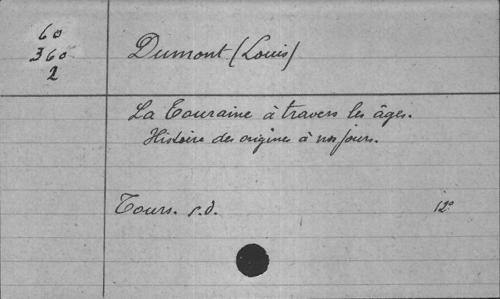 60
360
2
Dumont (Louis)
La Touraine à travers les âges.
Histoire des origines à nos jours.
Tours. s.d.
12°